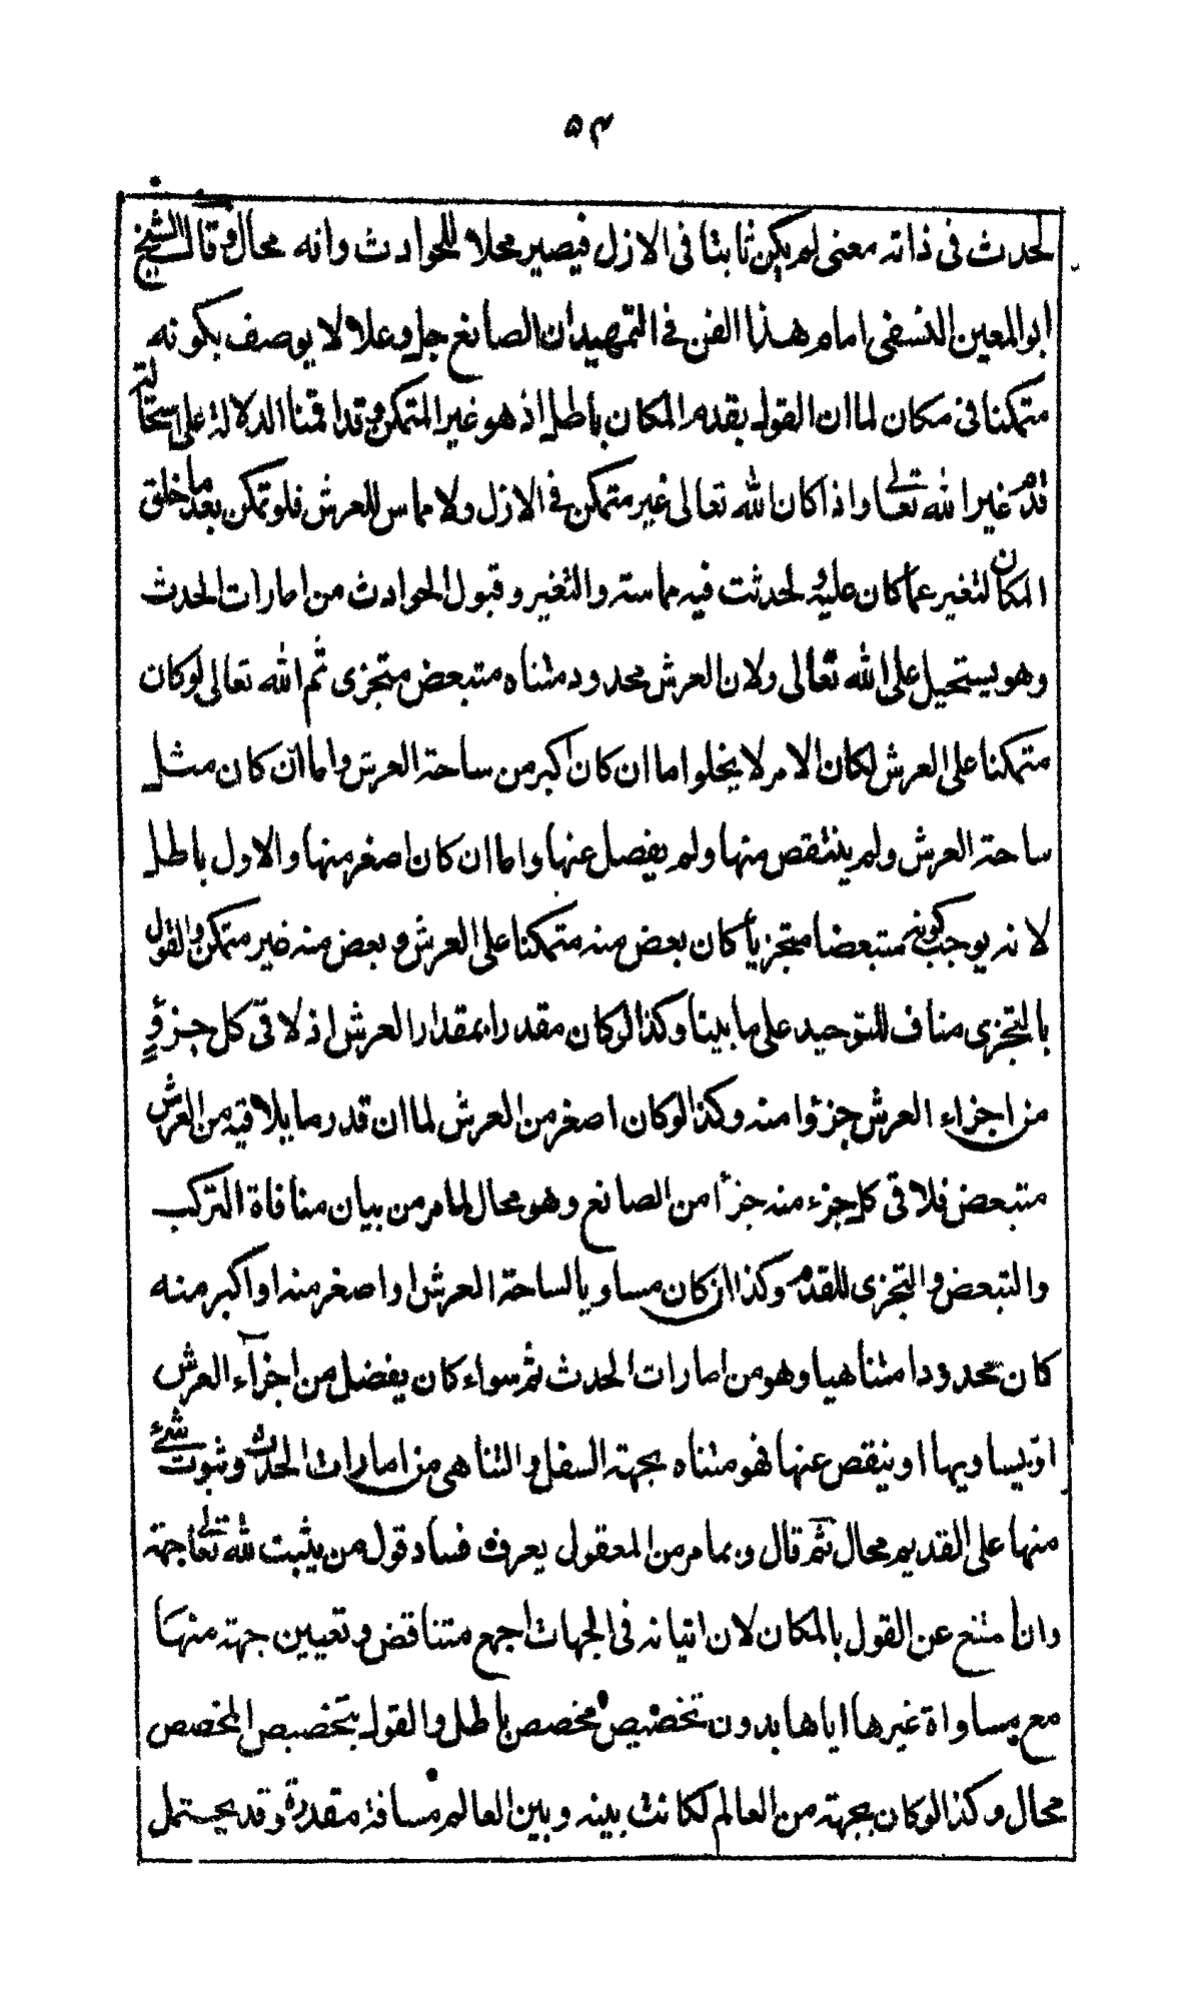 ٥٣
لحدث فى ذاته معنى لم يكن ثابتا فى الازل فيصير محلا للحوادث وانه محال وقال الشيخ
ابو المعين النسفى امام هذا الفن فى التمهيد ان الصانع جل وعلا لا يوصف بكونه
متمكنا فى مكان لما ان القول بقدم المكان باطل اذ هو غير المتمكن وقد اقمنا الدلالة على استحالة
قدم غير الله تعالى واذا كان الله تعالى غير متمكن فى الازل ولا مماس للعرش فلو تمكن بعد ما خلق
المكان لتغير عما كان عليه ولحدثت فيه مماسته والتغير وقبول الحوادث من امارات الحدث
وهو يستحيل على الله تعالى ولان العرش محدود متناه متبعض متجزى ثم الله تعالى لو كان
متمكنا على العرش لكان الامر لا يخلو اما ان كان اكبر من ساحة العرش واما ان كان مثل
ساحة العرش ولم ينتقص منها ولم يفصل عنها واما ان كان اصغر منها والاول باطل
لانه يوجب كونه متبعضا متجزيا كان بعض منه متمكنا على العرش وبعض منه غير متمكن والقول
بالتجزى مناف للتوحيد على ما بينا وكذا لو كان مقدرا بمقدار العرش اذ لاقى كل جزؤ
من اجزاء العرش جزؤا منه وكذا لو كان اصغر من العرش لما ان قدر ما يلاقيه من العرش
متبعض فلاقى كل جزء منه جزأ من الصانع وهو محال لما مر من بيان منافاة التركب
والتبعض والتجزى للقدم وكذا ان كان مساويا لساحة العرش او اصغر منه او اكبر منه
كان محدودا متناهيا وهو من امارات الحدث ثم سواء كان يفضل من اجزاء العرش
او يساويها او ينقص عنها فهو متناه بجهة السفل والتناهى من امارات الحدث وثبوت شئ
منها على القديم محال ثم قال وبما مر من المعقول يعرف فساد قول من يثبت لله تعالى جهة
وان امتنع عن القول بالمكان لان اتيانه فى الجهات اجمع متناقض وتعيين جهة منها
مع مساواة غيرها اياها بدون تخصيص مخصص باطل والقول بتخصيص المخصص
محال وكذا لو كان بجهة من العالم لكانت بينه وبين العالم مسافة مقدرة وقد يحتمل